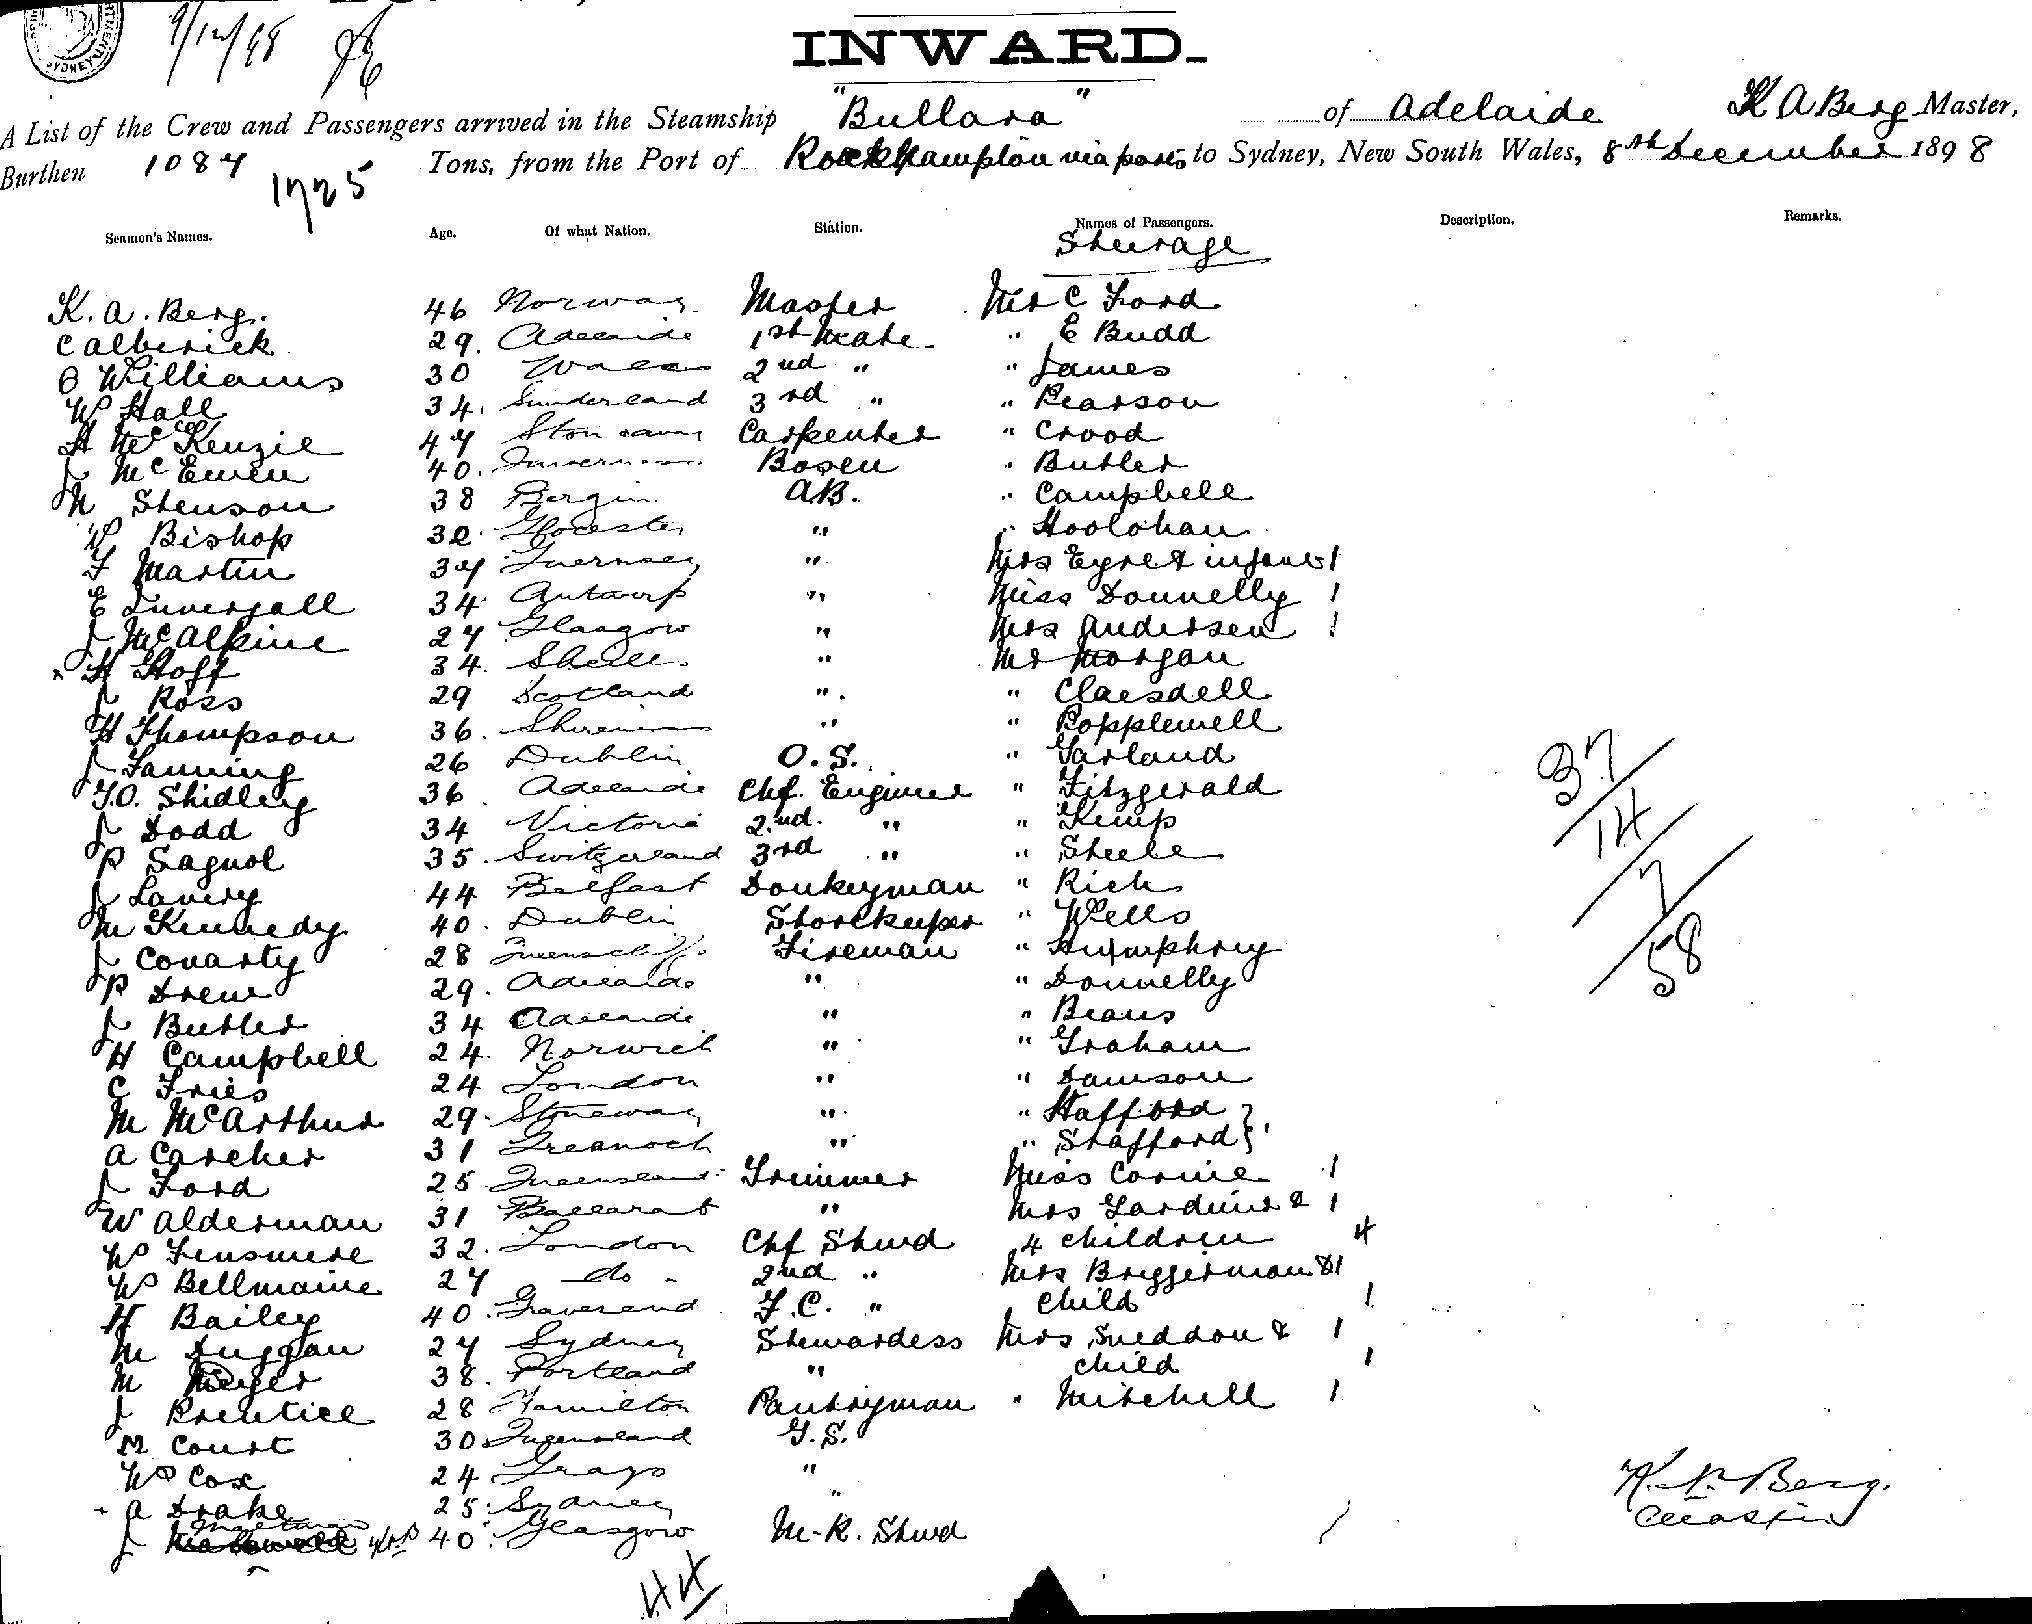 9/12/98
INWARD.
A List of the Crew and Passengers arrived in the Steamship "Bullara" of Adelaide K A Berg Master,
Burthen 1087 Tons, from the Port of Rockhampton via ports to Sydney, New South Wales, 8th December 1898
1725
Seamen's Names. Age. Of what Nation. Station. Names of Passengers. Description. Remarks.
Steerage
K. A. Berg. 46 Norway Master Mr C Ford
C Alberick 29. Adelaide 1st Mate " E Budd
O Williams 30 Wales 2nd " " James
W Hall 34. Sunderland 3rd " " Pearson
H McKenzie 47 Carpenter " Crood
J McEwen 40. Inverness Bosen " Butler
N Stenson 38 Bergin AB. " Campbell
W Bishop 32 Glocester " " Hoolohan
F Martin 37 Guernsey " Mrs Eyre & infant 1
E Invergall 34 Antwerp " Miss Donnelly 1
J McAlpine 27 Glasgow " Mrs Andersen 1
x H Hoff 34. " Mr Morgan
J Ross 29 Scotland " " Claesdell
H Thompson 36. " " Popplewell
J Fanning 26 Dublin O.S. " Garland
T.O. Shidley 36 Adelaide Chf. Engineer " Fitzgerald
J Dodd 34 Victoria 2nd " " Kemp
P Sagnol 35. Switzerland 3rd " " Steele
J Lavery 44 Belfast Donkeyman " Rich
M Kennedy 40. Dublin Storekeeper " Wells
J Conarty 28 Queenscliff Fireman " Humphrey
P Drew 29. Adelaide " " Donnelly
J Butler 34 Adelaide " " Beans
H Campbell 24 Norwich " " Graham
C Fries 24 London " " Dawson
M McArthur 29. Stoneway " " Hafford }
A Carcher 31 Greanock " " Stafford } 1
J Ford 25 Queensland Trimmer Miss Corrie 1
W Alderman 31 Ballarat " Mrs Gardiner & 1
W Finsmere 32. London Chf Stwd 4 children 4
W Bellmaine 27 do 2nd " Mrs Briggerman & 1
H Bailey 40. Gravesend F.C. " child 1
M Duggan 27 Sydney Stewardess Mrs Sneddon & 1
M Meyer 38. Portland " child 1
J Prentice 28 Hamilton Pantryman " Mitchell 1
M Court 30 Queensland G.S.
W Cox 24 Grays "
A Drake 25. Sydney "
J 40 Glasgow M-R. Stwd
37/14/7/58
44
K. A. Berg.
Master